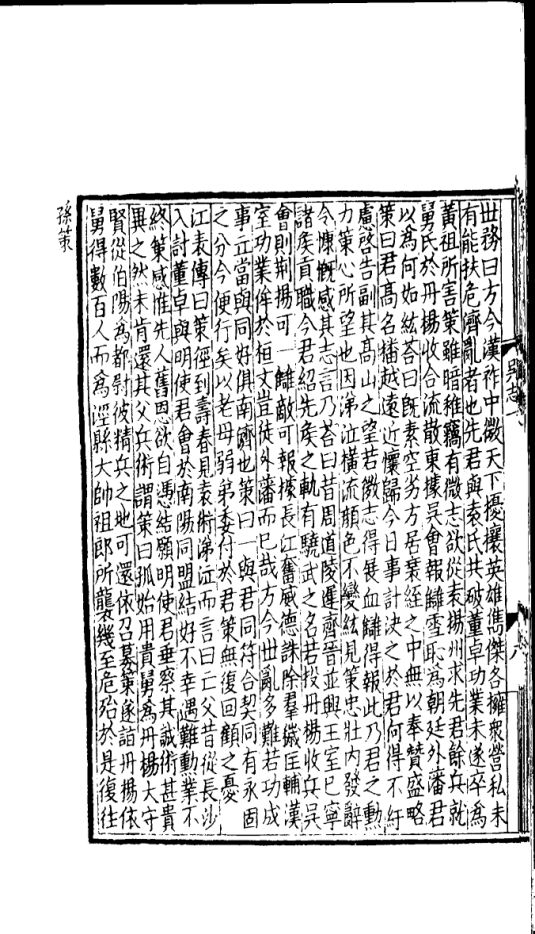 世務曰方今漢祚中微天下擾攘英雄雋傑各擁衆營私未
有能扶危濟亂者也先君與袁氏共破董卓功業未遂卒爲
黃祖所害策雖暗稚竊有微志欲從袁揚州求先君餘兵就
舅氏於丹楊收合流散東據吳會報讎雪恥爲朝廷外藩君
以爲何如紘荅曰旣素空劣方居衰絰之中無以奉贊盛略
策曰君高名播越遠近懷歸今日事計決之於君何得不紆
慮啓告副其高山之望若微志得展血讎得報此乃君之勳
力策心所望也因涕泣橫流顔色不變紘見策忠壯內發辭
令慷慨感其志言乃荅曰昔周道陵遲齊晉並興王室已寧
諸侯貢職今君紹先侯之軌有驍武之名若投丹楊收兵吳
會則荆揚可一讎敵可報據長江奮威德誅除羣穢匡輔漢
室功業侔於桓文豈徒外藩而已哉方今世亂多難若功成
事立當與同好俱南濟也策曰一與君同符合契同有永固
之分今便行矣以老母弱弟委付於君策無復回顧之憂
江表傳曰策徑到壽春見袁術涕泣而言曰亡父昔從長沙
入討董卓與明使君會於南陽同盟結好不幸遇難勳業不
終策感惟先人舊恩欲自憑結願明使君垂察其誠術甚貴
異之然未肯還其父兵術謂策曰孤始用貴舅爲丹楊太守
賢從伯陽爲都尉彼精兵之地可還依召募策遂詣丹楊依
舅得數百人而爲涇縣大帥祖郎所襲幾至危殆於是復往
孫策